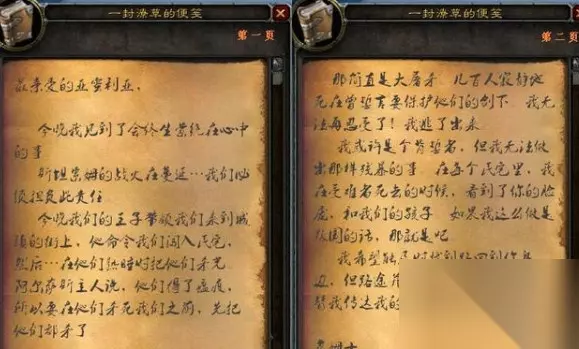 一封潦草的便笺
第一页
最亲爱的亚蜜利亚,
今晚我见到了会终生萦绕在心中
的
斯坦索姆的战火在蔓延…我们必
须担负此责任
今晚我们的王子带领我们来到城
镇的街上,他命令我们闯入民宅,
然后…在他们熟睡时把他们杀光
阿尔萨斯主人说,他们得了瘟疫,
所以要在他们杀死我们之前,先把
他们都杀了
一封潦草的便笺
第二页
那简直是大屠杀 几百人寂静地
死在曾誓言要保护他们的剑下 我无
法再忍受了!我逃了出来
我或许是个背誓者,但我无法做
出那样残暴的事 在每个民宅里,我
在受难者死去的时候,看到了你的脸
庞,和我们的孩子 如果我这么做是
叛国的话,那就是吧
我希望能及时找到路回到你身
边,但路途
替我传达我的